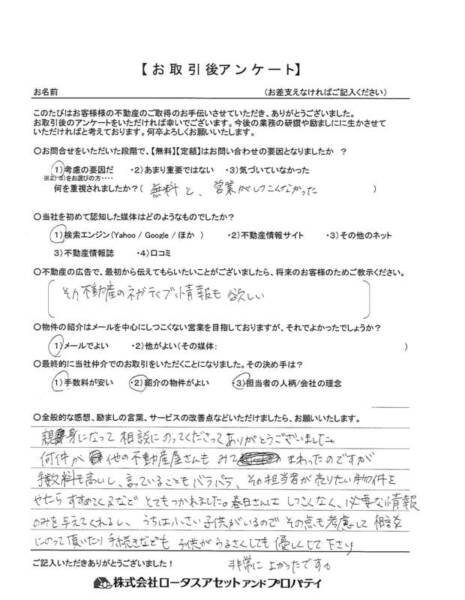 【お取引後アンケート】
お名前 (お差支えなければご記入ください)
このたびはお客様様の不動産のご取得のお手伝いさせていただき、ありがとうございました。
お取引後のアンケートをいただければ幸いでございます。今後の業務の研鑽や励ましにに生かさせて
いただければと考えております。何卒よろしくお願いいたします。
○お問合せをいただいた段階で、【無料】【定額】はお問い合わせの要因となりましたか ？
1)考慮の要因だ ・2)あまり重要ではない ・3)気づいていなかった
※2)・3)をお選びの方・・・・
何を重視されましたか？( 無料と、営業がしつこくなかった )
○当社を初めて認知した媒体はどのようなものでしたか？
1)検索エンジン(Yahoo / Google / ほか ) ・2)不動産情報サイト ・3)その他のネット
3)不動産情報誌 ・4)口コミ
○不動産の広告で、最初から伝えてもらいたいことがございましたら、将来のお客様のためご教示ください。
その不動産のネガティブな情報も欲しい
○物件の紹介はメールを中心にしつこくない営業を目指しておりますが、それでよかったでしょうか？
1)メールでよい ・2)他がよい(その媒体: )
○最終的に当社仲介でのお取引をいただくことになりました。その決め手は？
1)手数料が安い ・2)紹介の物件がよい ・3)担当者の人柄/会社の理念
○全般的な感想、励ましの言葉、サービスの改善点などいただけましたら、お願いいたします。
親身になって相談にのってくださってありがとうございました
何件か他の不動産屋さんもみてまわったのですが
手数料も高いし、言っていることもバラバラ、その担当者が売りたい物件を
やたらすすめてくるなどとてもつかれました。春日さんはしつこくなく、必要な情報
のみを与えてくれるし、うちは小さい子供がいるのでその点も考慮して相談
にのって頂いたり手続きなども子供がうるさくしても優しくして下さり
非常に良かったです。
ご記入いただきありがとうございました！
株式会社ロータスアセットアンドプロパティ